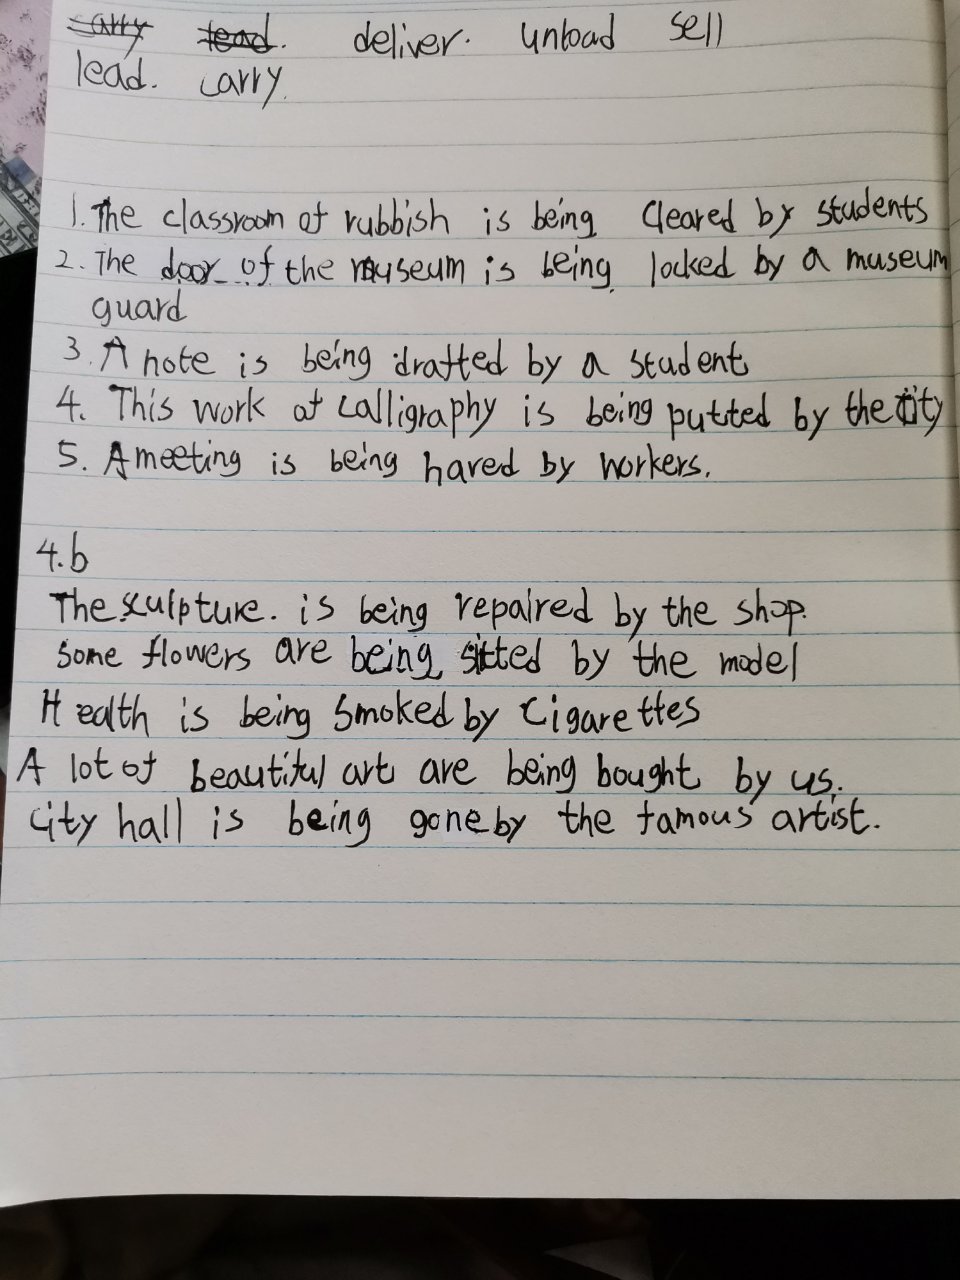 carry lead. deliver. unload sell
lead. carry.
1. The classroom of rubbish is being cleared by students
2. The door of the museum is being locked by a museum
guard
3. A note is being drafted by a student
4. This work of calligraphy is being putted by the city
5. A meeting is being hared by workers.
4.b
The sculpture. is being repaired by the shop.
Some flowers are being sitted by the model
Health is being smoked by cigarettes
A lot of beautiful art are being bought by us.
City hall is being gone by the famous artist.